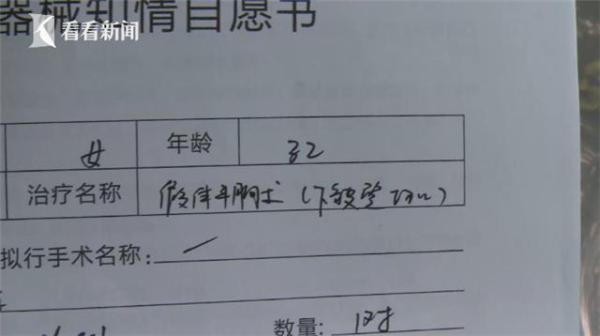 器械知情自愿书
看看新闻
女 年龄 32
治疗名称 假体丰胸术(下皱襞切口)
拟行手术名称:
数量: 1对